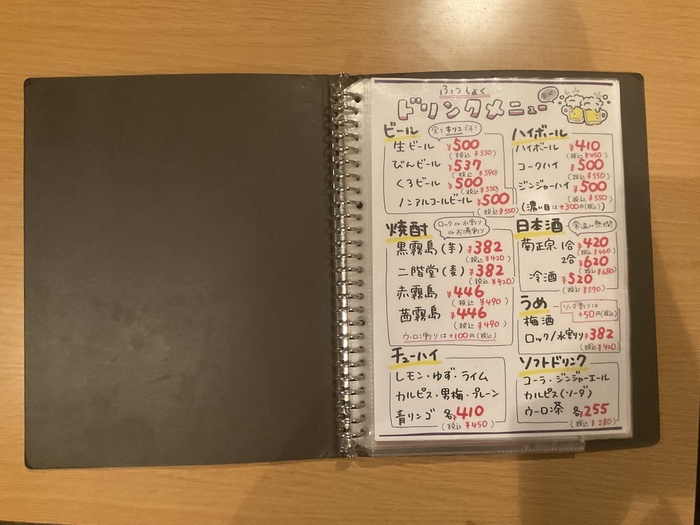 ふつしょく
ドリンクメニュー
ビール
全てキリンです!
生ビール ¥500
(税込 ¥550)
びんビール ¥537
(税込 ¥590)
くろビール ¥500
(税込 ¥550)
ノンアルコールビール ¥500
(税込 ¥550)
焼酎
ロック or 水割り
or お湯割り
黒霧島(芋) ¥382
(税込 ¥420)
二階堂(麦) ¥382
(税込 ¥420)
赤霧島 ¥446
(税込 ¥490)
茜霧島 ¥446
(税込 ¥490)
ウーロン割りは+100円(税込)
チューハイ
レモン・ゆず・ライム
カルピス・男梅・プレーン
青リンゴ 各¥410
(税込 ¥450)
ハイボール
ハイボール ¥410
(税込 ¥450)
コークハイ ¥500
(税込 ¥550)
ジンジャーハイ ¥500
(税込 ¥550)
(濃い目は+300円(税込))
日本酒
常温 or 熱燗
菊正宗 1合 ¥420
(税込 ¥460)
2合 ¥620
(税込 ¥680)
冷酒 ¥520
(税込 ¥570)
うめ
ソーダ割りは
+50円(税込)
梅酒
ロック/水割り ¥382
(税込 ¥420)
ソフトドリンク
コーラ・ジンジャーエール
カルピス(ソーダ)
ウーロン茶 各¥255
(税込 ¥280)